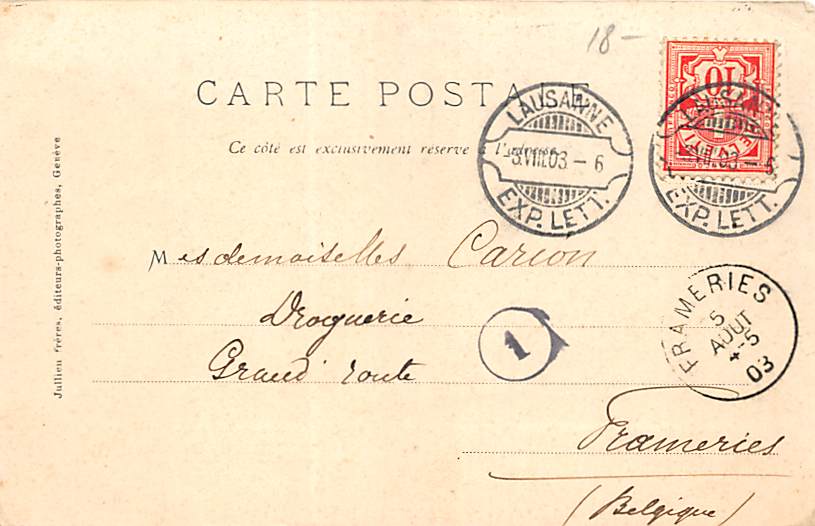 18-
CARTE POSTALE
Ce côté est exclusivement réservé
LAUSANNE
-3.VIII.03.-6
EXP. LETT.
10
LAUSANNE
VIII.03.-6
EXP. LETT.
Mesdemoiselles Carion
Droguerie
Grand'route
Frameries
(Belgique)
1
FRAMERIES
5
AOUT
4-5
03
Jullien frères, éditeurs-photographes, Genève